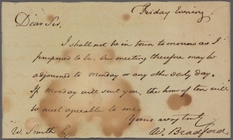 Friday Evening
Dear Sir,
I shall not be in town to morrow as I
proposed to be, the meeting therefore may be
adjourned to Monday or any other day.
If Monday will suit you, the hour of ten will
be most agreeable to me.
Yours very truly
W. Smith W. Bradford